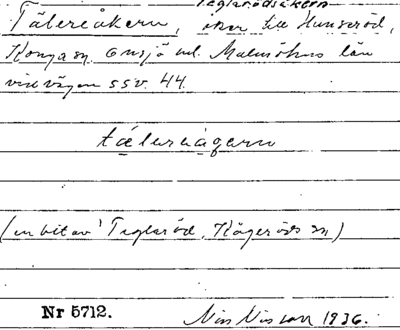 Teglarödsåkern
Tälereåkern, åker till Hunseröd,
Konga sn. Onsjö hd. Malmöhus län
vid vägen SSV. 44.
tälereågern
(en bit av Teglaröd, Kågeröds sn)
Nr 5712. Nils Nilsson 1936.